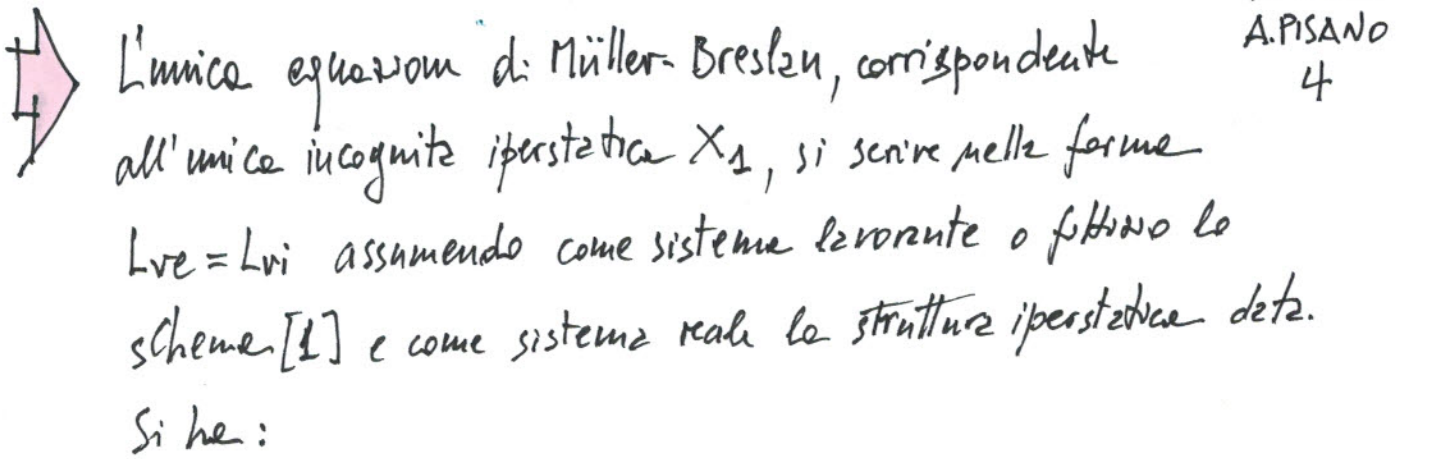 L'unica equazione di Müller-Breslau, corrispondente
A.PISANO
4
all'unica incognita iperstatica X1, si scrive nella forma
Lve = Lvi assumendo come sistema lavorante o fittizio lo
schema [1] e come sistema reale la struttura iperstatica data.
Si ha: